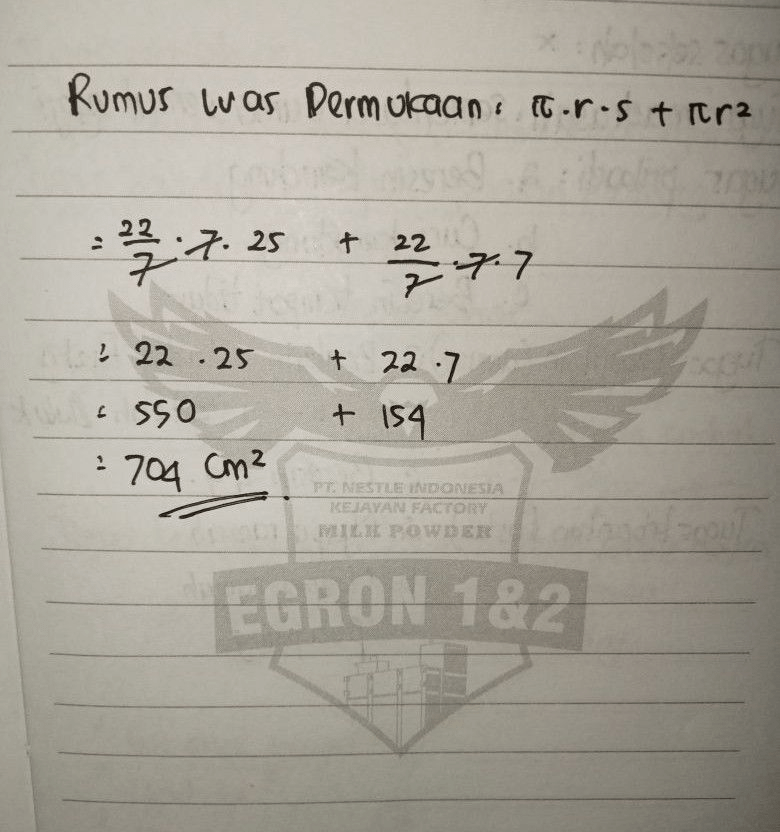 Rumus luas Permukaan: π.r.s + πr²
= 22/7 . 7. 25 + 22/7 .7.7
= 22 .25 + 22 .7
= 550 + 154
= 704 Cm²
PT. NESTLE INDONESIA
KEJAYAN FACTORY
MILK POWDER
EGRON 1&2